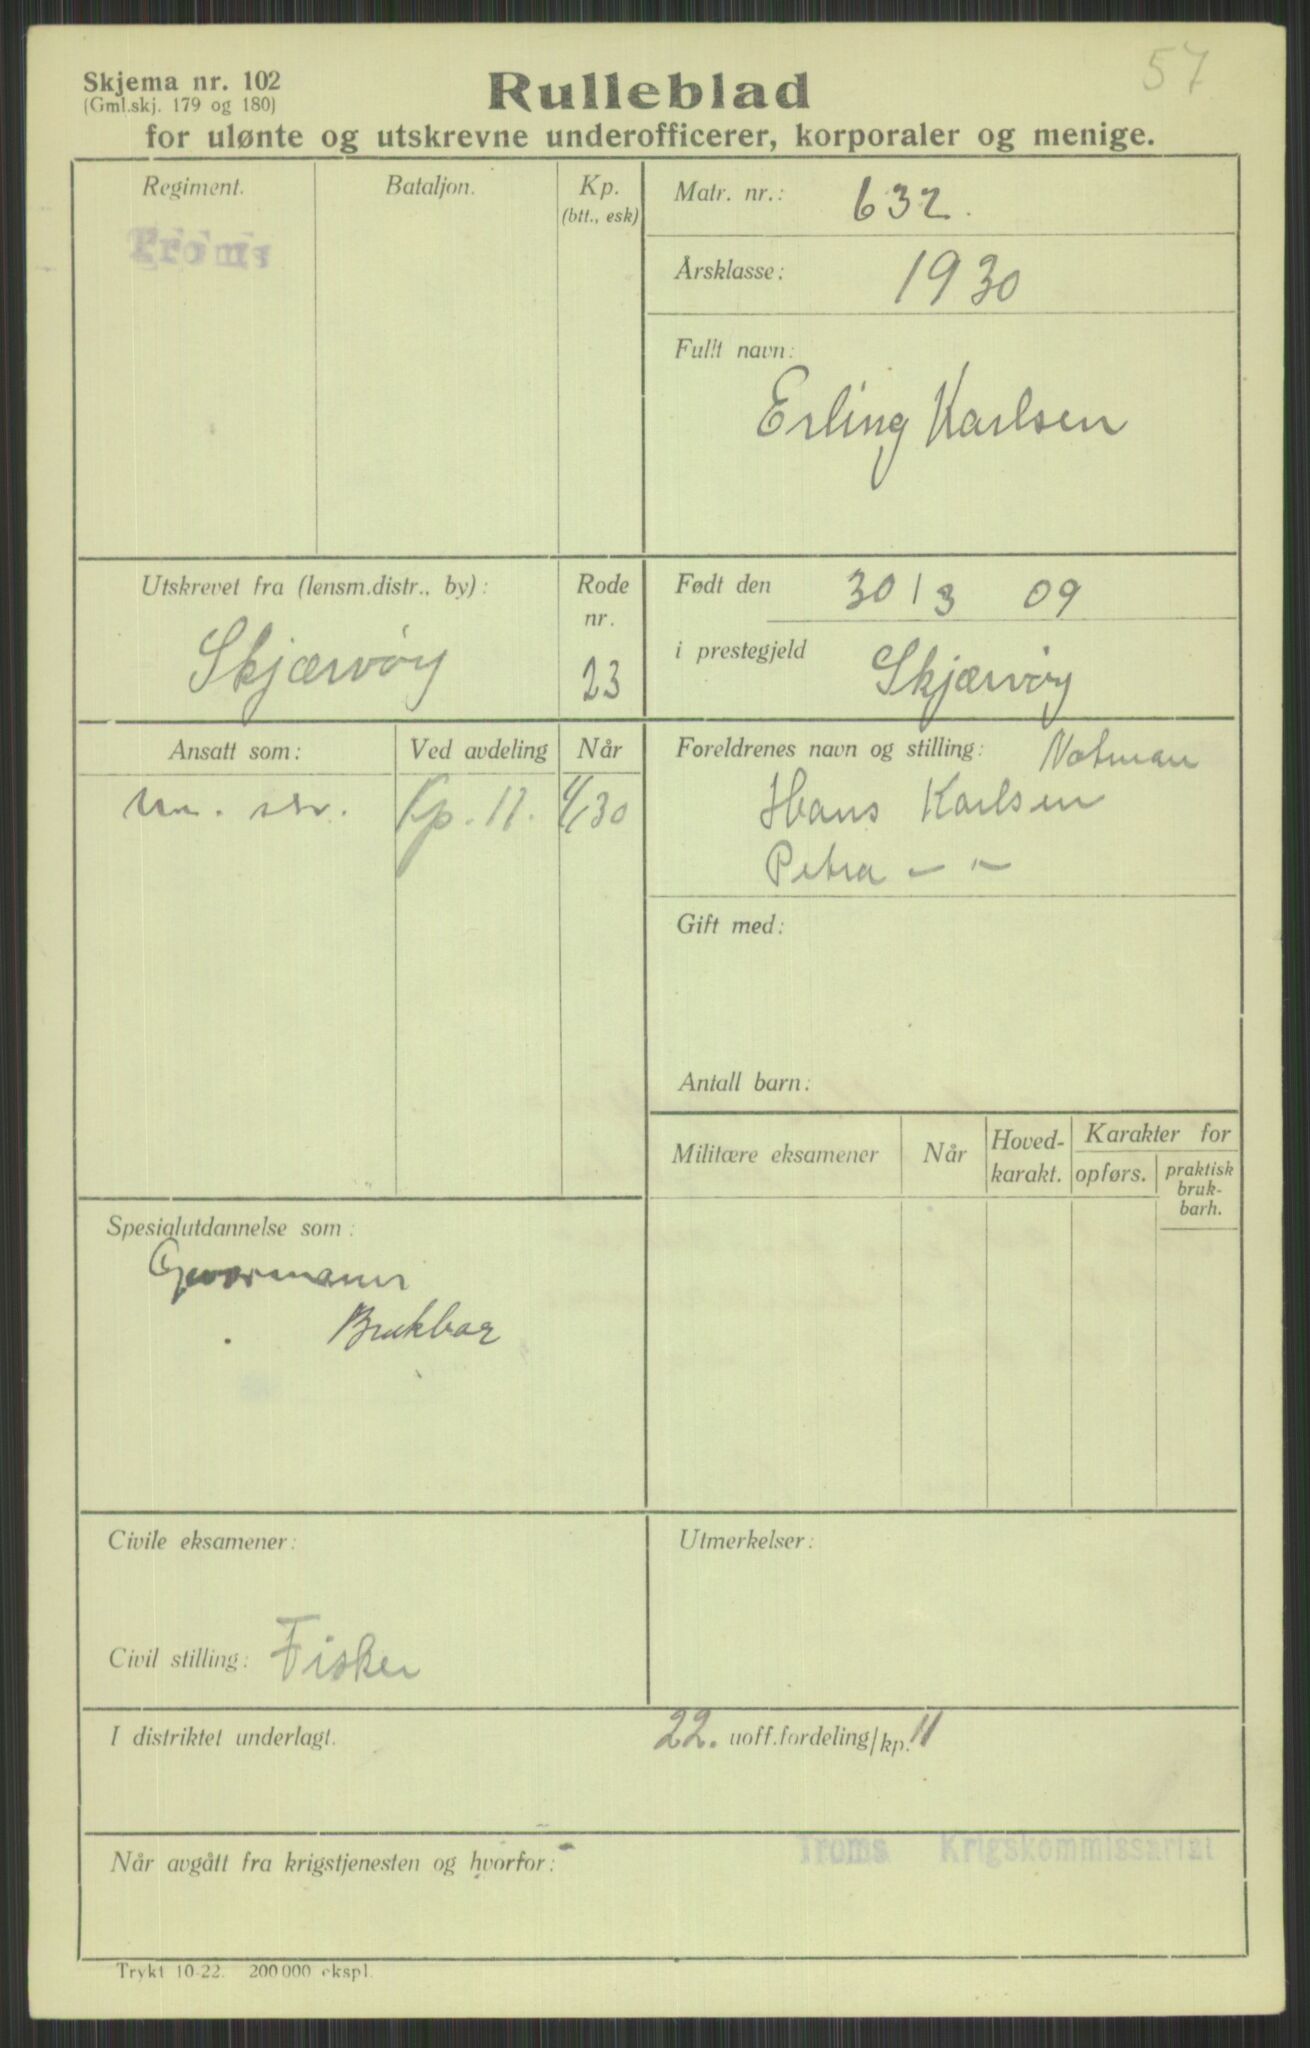 57
Skjema nr. 102
(Gml.skj. 179 og 180)
Rulleblad
for ulønte og utskrevne underofficerer, korporaler og menige.
Regiment.
Bataljon.
Kp.
(btt., esk)
Troms
Matr. nr.: 632.
Årsklasse: 1930
Fullt navn:
Erling Karlsen
Utskrevet fra (lensm.distr., by):
Skjærvøy
Rode
nr.
23
Født den 30/3 09
i prestegjeld Skjærvøy
Ansatt som:
Ved avdeling
Når
Kp. 11.
Foreldrenes navn og stilling: Notman
Hans Karlsen
Petra - -
Gift med:
Antall barn:
Militære eksamener
Når
Hoved-
karakt.
Karakter for
opførs.
praktisk
bruk-
barh.
Spesialutdannelse som:
Geværmann
Brukbar
Civile eksamener:
Civil stilling: Fisker
Utmerkelser:
I distriktet underlagt.
22. uoff.fordeling/kp. 11
Når avgått fra krigstjenesten og hvorfor:
Troms Krigskommissariat
Trykt 10-22. 200 000 ekspl.